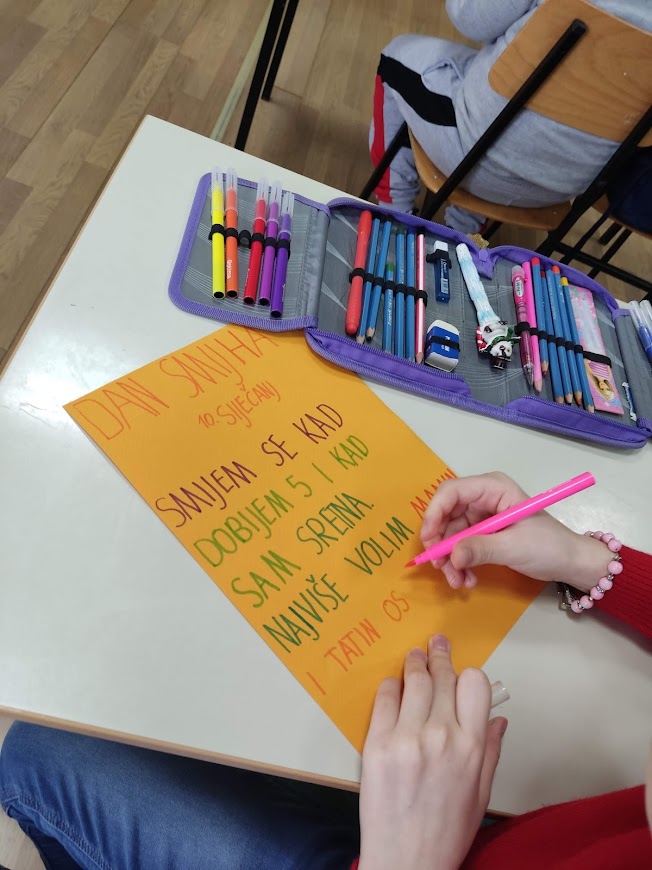 DAN SMIJHA
10. SIJEČANJ
SMIJEM SE KAD
DOBIJEM 5 I KAD
SAM SRETNA.
NAJVIŠE VOLIM
I TATIN OS